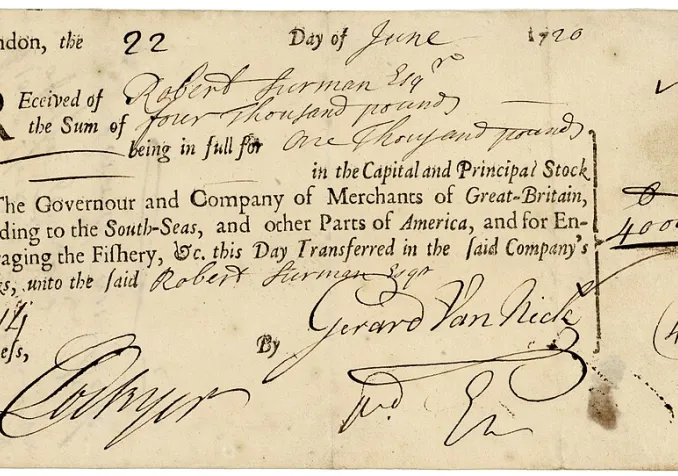 ndon, the 22 Day of June 1720
REceived of Robert Surman Esqr
the Sum of four Thousand pounds
being in full for One Thousand pounds
in the Capital and Principal Stock
The Governour and Company of Merchants of Great-Britain,
ding to the South-Seas, and other Parts of America, and for En-
raging the Fishery, &c. this Day Transferred in the said Company's
ks, unto the said Robert Surman Esqr
4000
ess,
By Gerard Van Neck
Lockyer